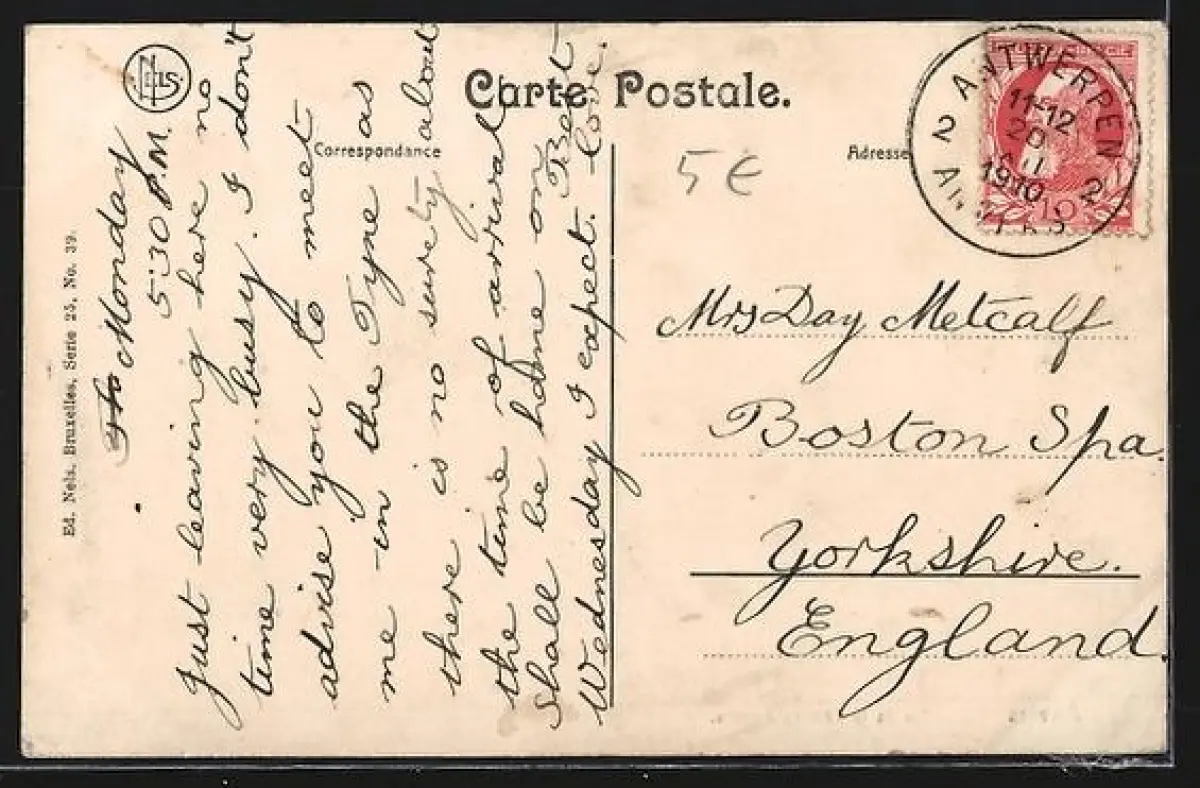 Carte Postale.
Correspondance
Adresse
NELS
Ed. Nels, Bruxelles, Serie 25, No. 39.
Monday
5.30 P.M.
Just leaving here no
time very busy. I don't
advise you to meet
me in the Tyne as
there is no surety about
the time of arrival
shall be home on
Wednesday I expect. Best love.
5€
ANTWERPEN
2 2
11-12
20
1910
10
Mrs Day Metcalf
Boston Spa.
Yorkshire.
England.